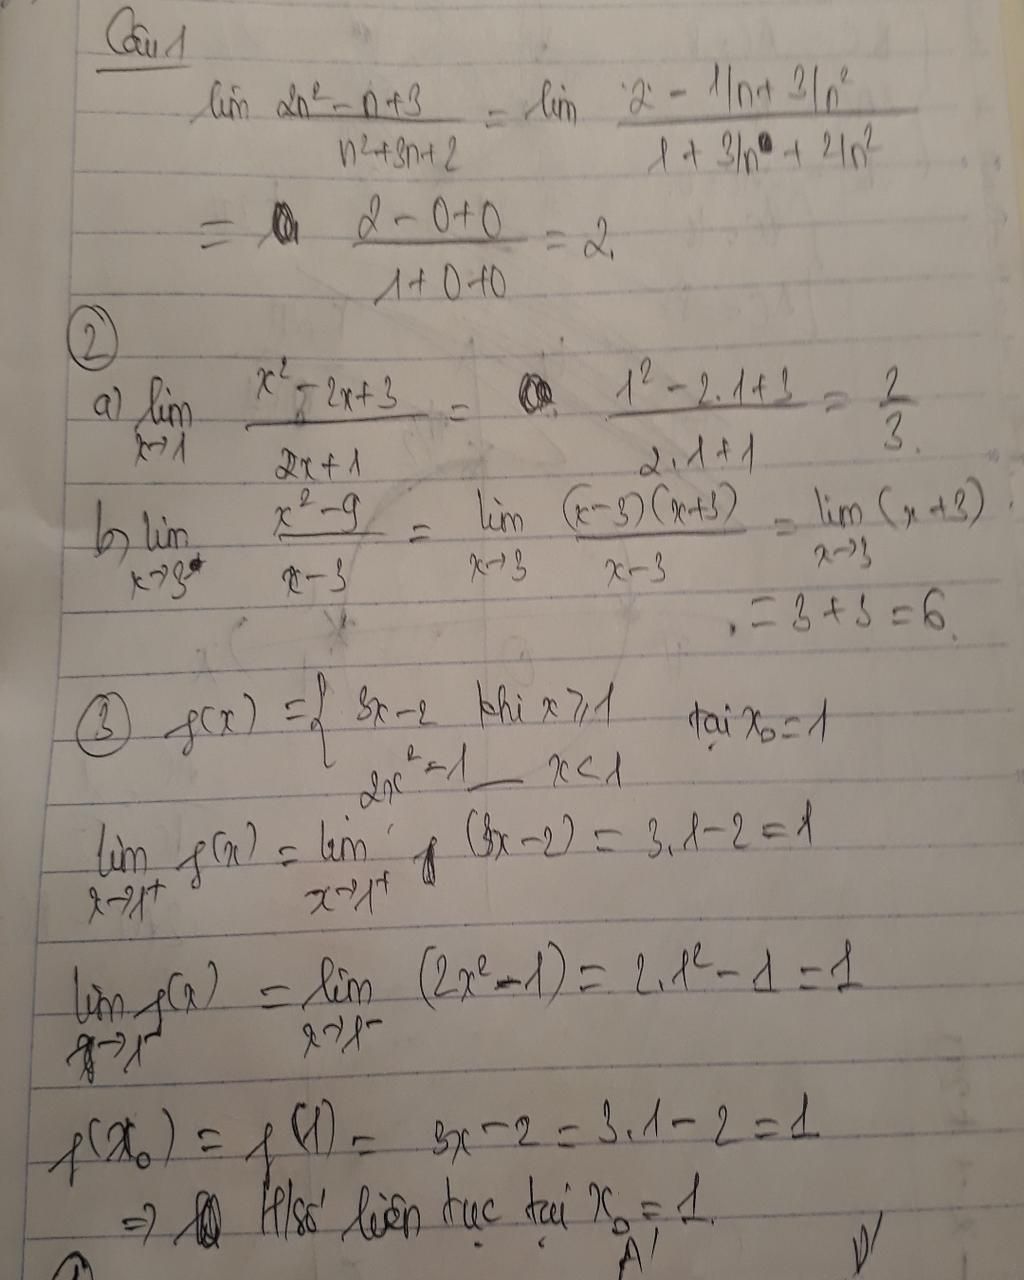 Câu 1
lim 2n² - n + 3 / n² + 3n + 2 = lim 2 - 1/n + 3/n² / 1 + 3/n + 2/n²
= 2 - 0 + 0 / 1 + 0 + 0 = 2.
②
a) lim x→1 x² - 2x + 3 / 2x + 1 = 1² - 2.1 + 3 / 2.1 + 1 = 2/3.
b) lim x→3 x² - 9 / x - 3 = lim x→3 (x - 3)(x + 3) / x - 3 = lim x→3 (x + 3)
= 3 + 3 = 6.
③ f(x) = { 3x - 2 khi x ⩾ 1 tại x₀ = 1
2x² - 1 — x < 1
lim x→1⁺ f(x) = lim x→1⁺ (3x - 2) = 3.1 - 2 = 1
lim x→1⁻ f(x) = lim x→1⁻ (2x² - 1) = 2.1² - 1 = 1
f(x₀) = f(1) = 3x - 2 = 3.1 - 2 = 1
=> H/số liên tục tại x₀ = 1.
A' D'